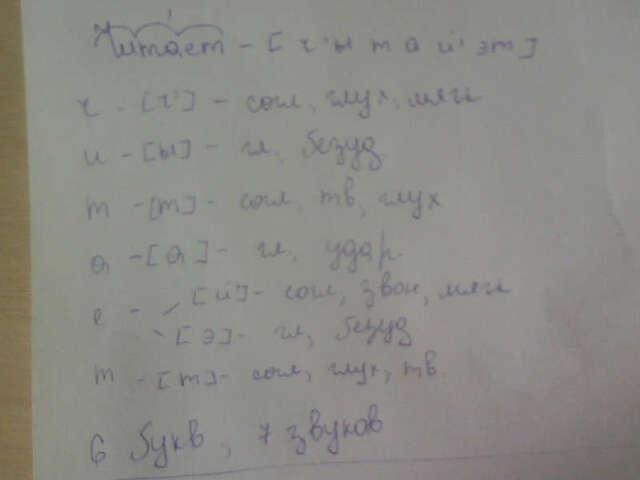 Читает - [ч' ы т а й' эт]
ч - [ч'] - согл, глух, мягк
и - [ы] - гл, безуд.
т - [т] - согл, тв, глух
а - [а] - гл, удар.
е - [й] - согл, звон, мягк
[э] - гл, безуд
т - [т] - согл, глух, тв.
6 букв, 7 звуков